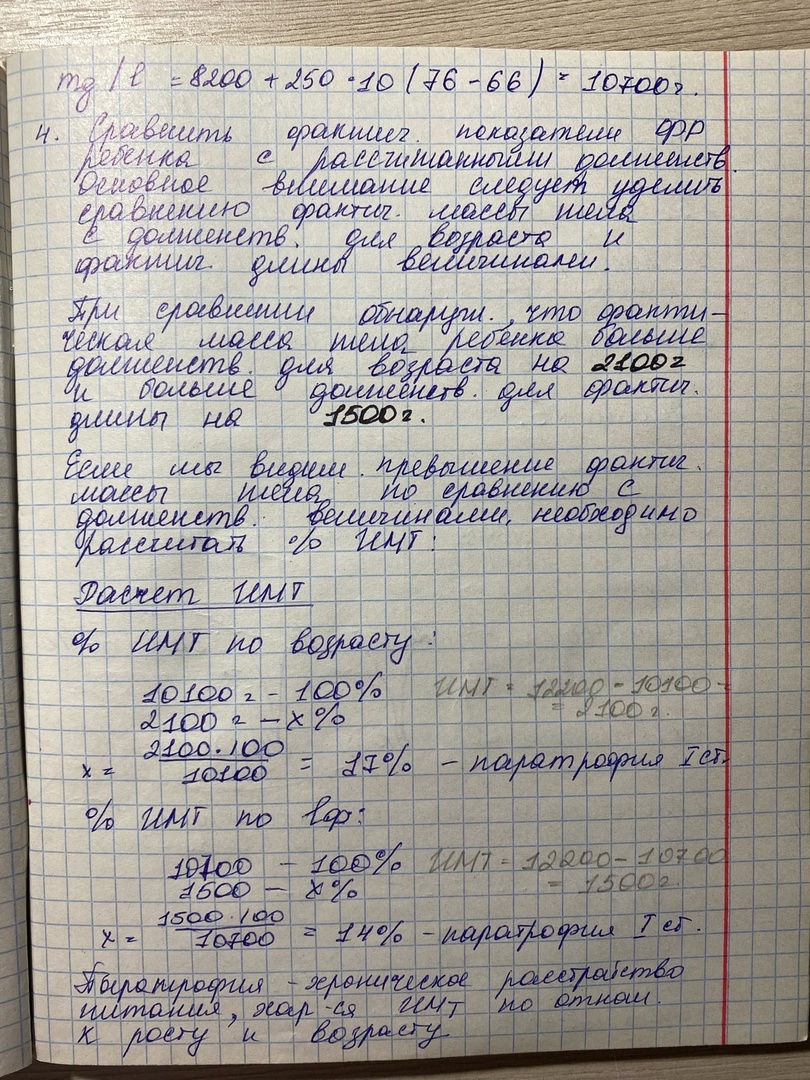 mд/l = 8200 + 250 · 10 (76 - 66) = 10700 г.
4. Сравнить фактич. показатели ФР
ребенка с рассчитанными долженств.
Основное внимание следует уделить
сравнению фактич. массы тела
с долженств. для возраста и
фактич. длины величинами.
При сравнении обнаруж., что факти-
ческая масса тела ребенка больше
долженств. для возраста на 2100 г
и больше долженств. для фактич.
длины на 1500 г.
Если мы видим превышение фактич.
массы тела по сравнению с
долженств. величинами, необходимо
рассчитать % ИМТ:
Расчет ИМТ
% ИМТ по возрасту:
10100 г - 100% ИМТ = 12200 - 10100 =
2100 г - x% = 2100 г.
x = 2100 · 100 / 10100 = 17% - паратрофия I ст.
% ИМТ по lф:
10700 - 100% ИМТ = 12200 - 10700
1500 - x% = 1500 г.
x = 1500 · 100 / 10700 = 14% - паратрофия I ст.
- хроническое расстройство
питания, хар-ся ИМТ по отнош.
к росту и возрасту